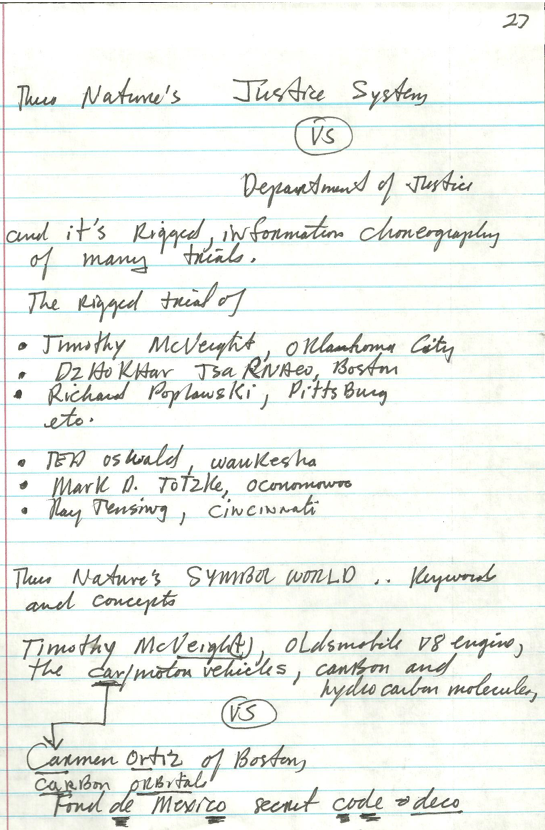 27
Thus Nature's Justice System
VS
Department of Justice
and it's Rigged, information choreography
of many trials.
The Rigged trial of
• Timothy McVeight, Oklahoma City
• DzHoKHar TsaRNAeo, Boston
• Richard Poplawski, PittsBurg
etc.
• TED Oswald, waukesha
• Mark D. Totzke, Oconomowoc
• Ray Tensing, Cincinnati
Thus Nature's SYMBOL WORLD .. Keyword
and concepts
Timothy McVeight), Oldsmobile V8 engine,
the car/motor vehicles, carbon and
hydrocarbon molecules,
VS
Carmen Ortiz of Boston,
CARBon ORBitals
Fond de Mexico secret code = deco